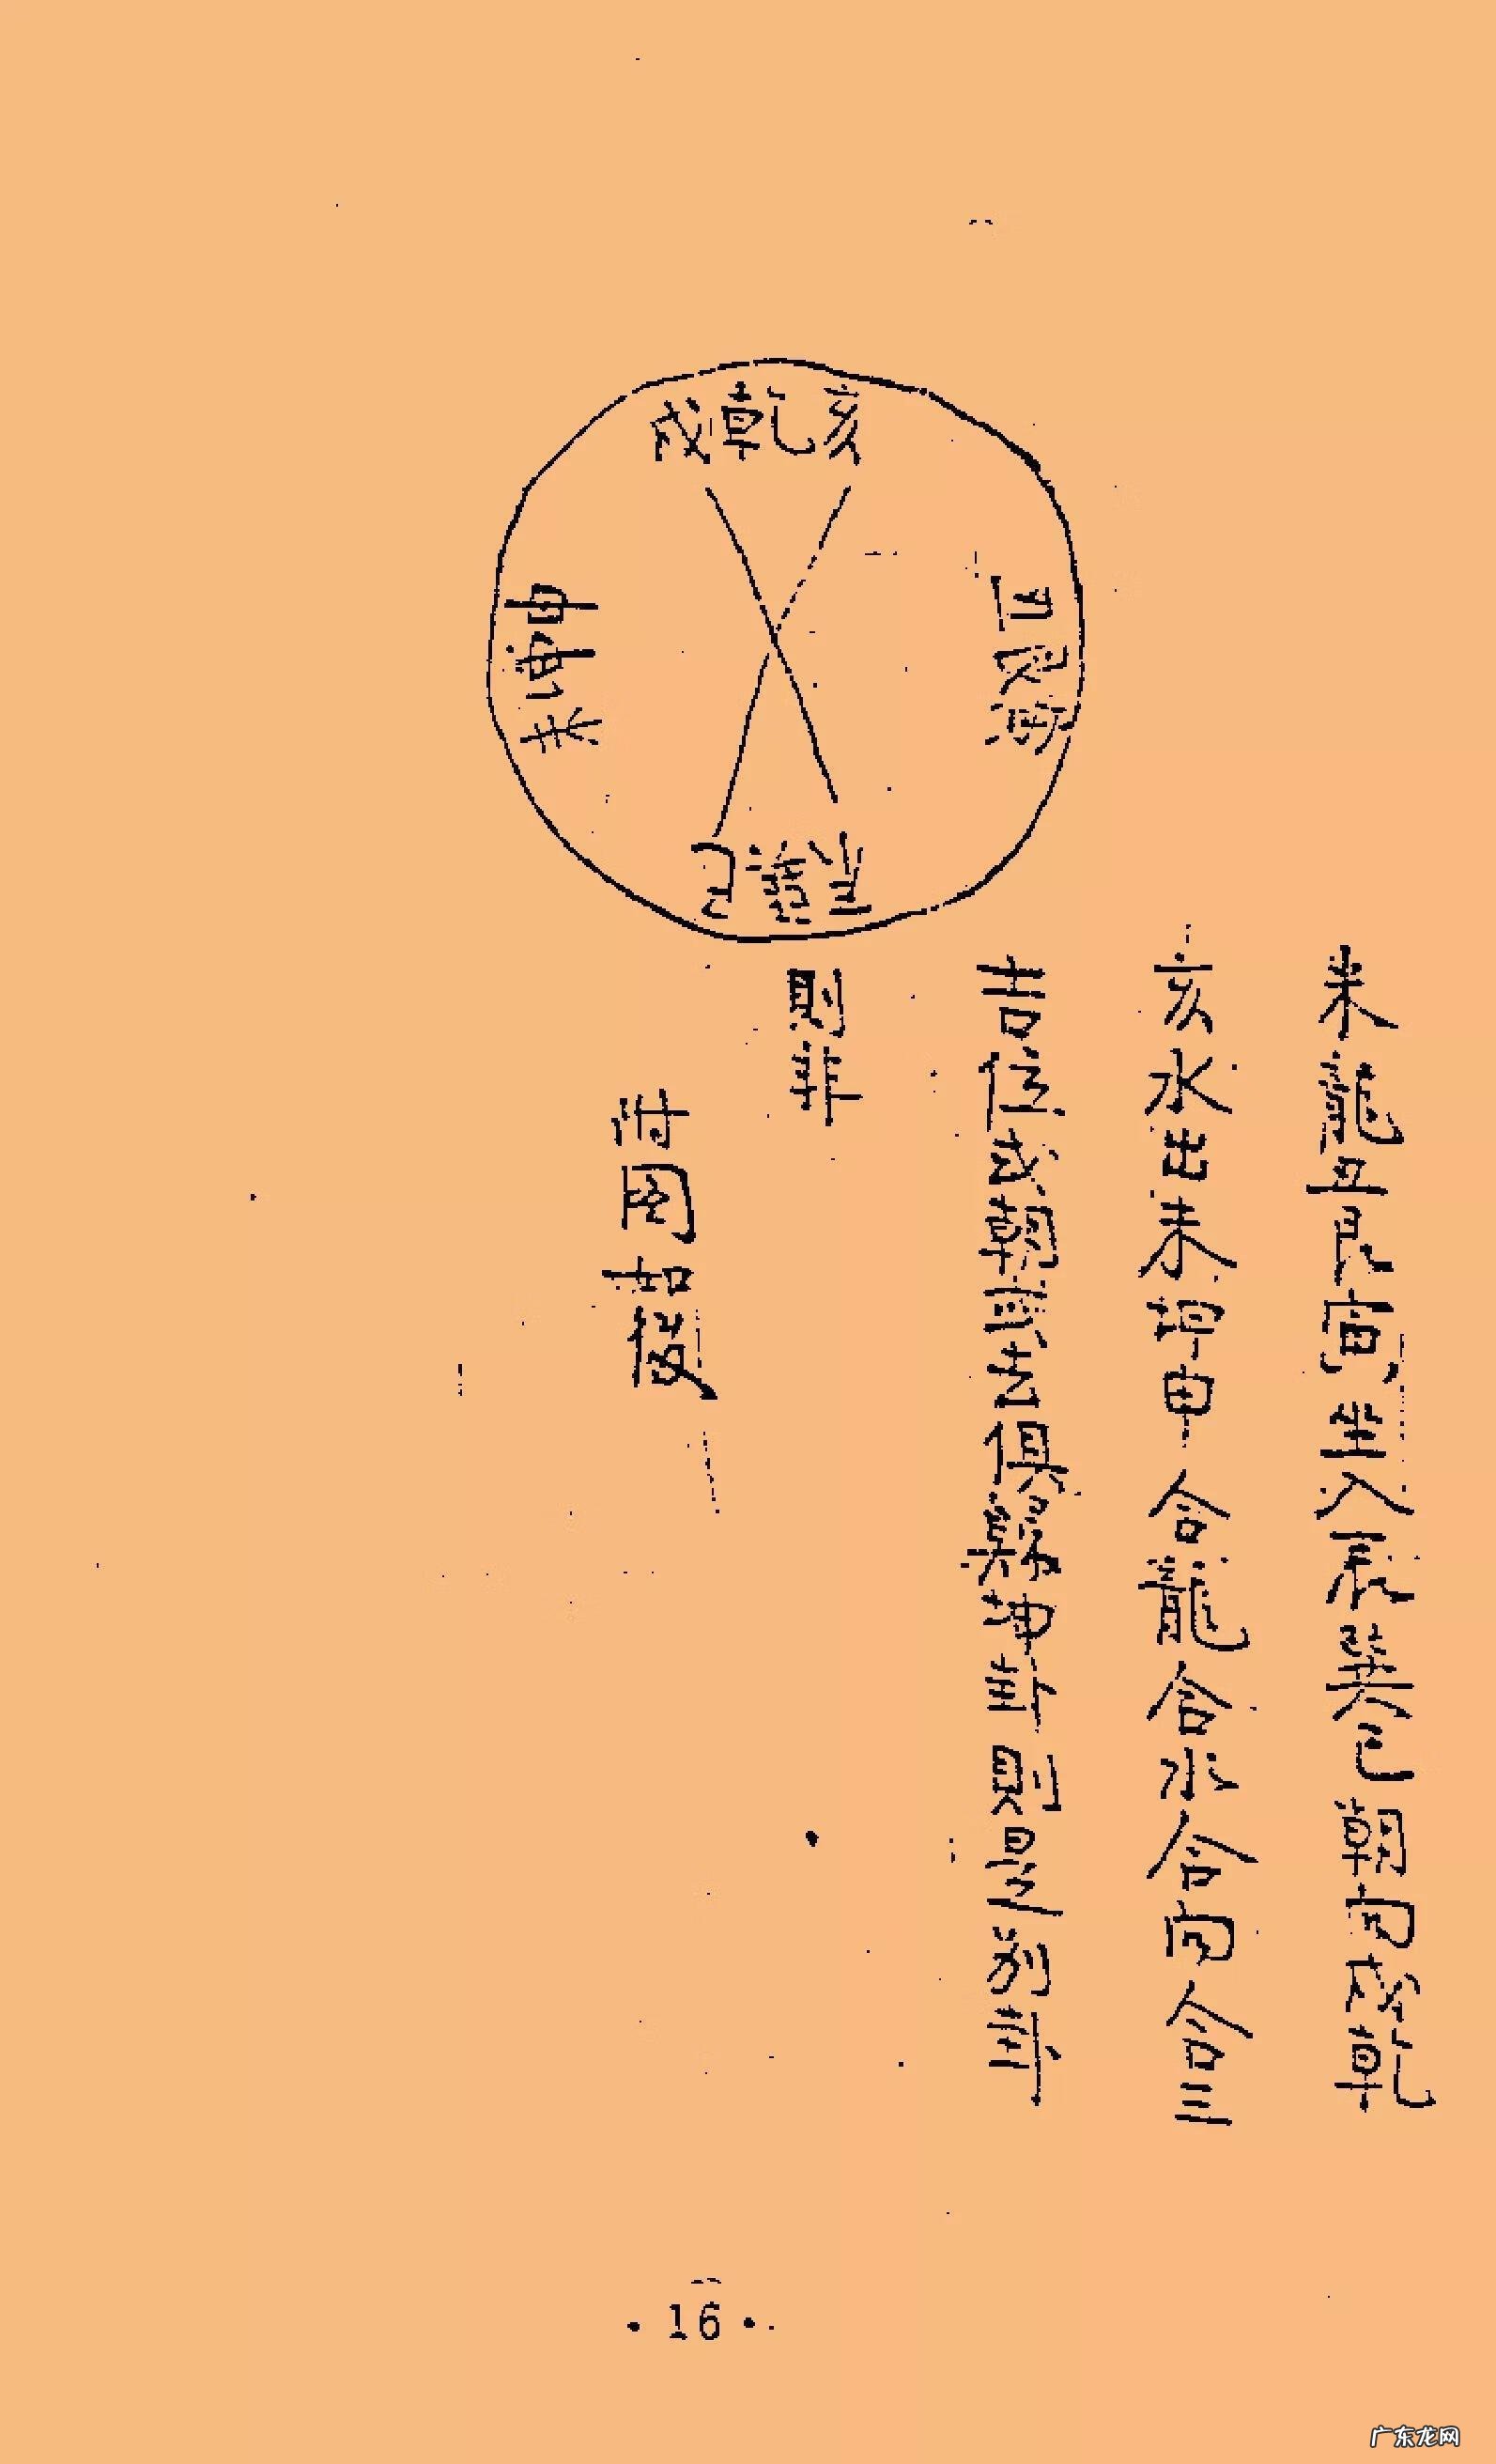 來龍丑艮寅坐入辰巽巳朝向戌乾
亥水出未坤申合龍合水合向合三
吉位或朝俱
坤卦則是別卦
則非
圖如後
戌乾亥
丑艮寅
未坤申
· 16 ·
广东龙网